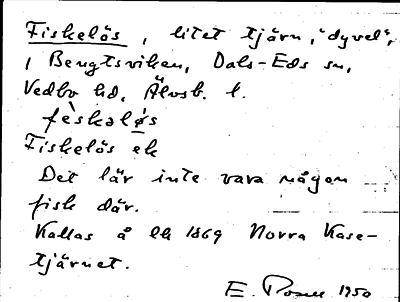 Fiskelös, litet tjärn, "dyvel",
i Bengtsviken, Dals-Eds sn,
Vedbo hd, Älvsb. l.
fèskəløs
Fiskelös ek
Det lär inte vara någon
fisk där.
Kallas å ek 1869 Norra Kase-
tjärnet.
E. 1950